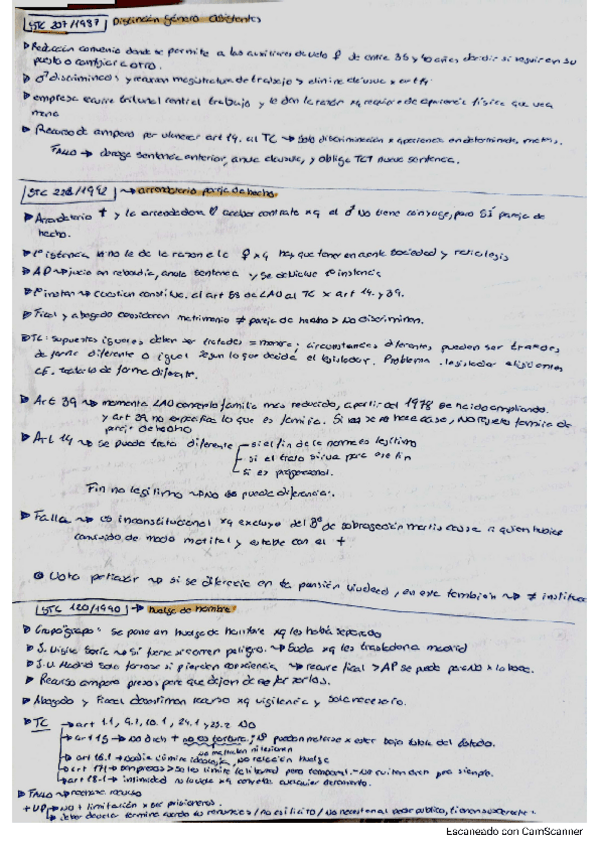 STC 207/1987 Distinción género asistentes
▷ Redacción convenio donde se permite a los auxiliares de vuelo ♀ de entre 35 y 40 años decidir si seguir en su
puesto o cambiar a otro.
▷ ♂ discriminados y recurren magistratura de trabajo > elimine cláusula x art 14
▷ empresa recurre tribunal central trabajo y le dan la razón xq requiere de apariencia física que
▷ Recurso de amparo por vulnerar art 14. al TC → solo discriminación x apariencia en determinada
Fallo → deroga sentencia anterior, anula cláusula, y obliga TCT nueva sentencia.
STC 222/1992 → arrendatario pareja de hecho
▷ Arrendatario † y la arrendadora acabar contrato xq el ♂ No tiene conyuge, pero SÍ pareja de
hecho.
▷ 1ª instancia no le da la razón a la ♀ xq hay que tener en cuenta sociedad y
▷ AP → juicio en rebeldía, anula sentencia y se devuelve 1ª instancia
▷ 1ª instan → cuestión constitu. al art 58 de LAU al TC x art 14. y 39.
▷ Fiscal y abogado consideran matrimonio ≠ pareja de hecho > No discrimin.
▷ TC: supuestos iguales deben ser tratados = manera; circunstancias diferentes pueden ser tratadas
de forma diferente o igual según lo que decida el legislador. Problema. legislador
CE. tratarlo de forma diferente.
▷ Art 39 → momento LAU concepto familia más reducido, a partir del 1978 se ha ido ampliando.
y art 39 no especifica lo que es familia. Si no se hace caso, No respeto familia de
pareja de hecho
▷ Art 14 → se puede tratar diferente si el fin de la norma es legítimo
si el trato sirva para ese fin
si es proporcional.
Fin no legítimo → No se puede diferenciar.
▷ Fallo → es inconstitucional xq excluye del Bº de subrogación mortis causa a quien hubiese
convivido de modo marital y estable con el †
Voto particular → si se diferencia en la pensión viudedad, en este también → ≠
STC 120/1990 → huelga de hambre
▷ Grupo "grapo" se pone en huelga de hambre xq les había separado
▷ J. Vigila Soria → Si forzar xcorren peligro. → Suda xq les trasladan a madrid
▷ J.V. Madrid solo forzarse si pierden consciencia → recurre fiscal > AP se puede
▷ Recurso amparo presos para que dejen de forzarlos.
▷ Abogado y Fiscal desestiman recurso xq vigilancia y solo necesario.
▷ TC → art 1.1, 9.1, 10.1, 24.1 y 25.2 NO
→ art 15 → No dich + no es tortura; pueden meterse x estar bajo tutela del Estado.
→ art 16.1 → ideología, No relación huelga
→ art 17.1 → No siempre.
→ art 18.1 → intimidad no
▷ Fallo → rechaza recurso
+ VP → No + limitación x ser prisioneros.